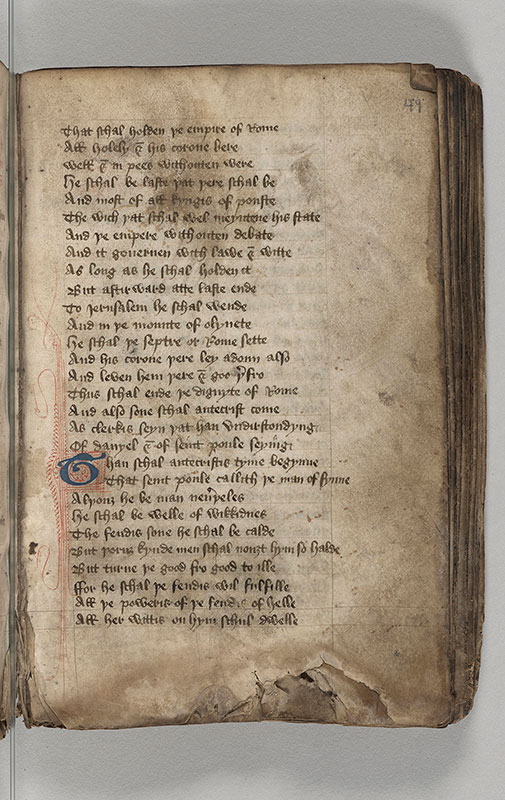 179
That schal holden þe empire of Rome
All holely & his corone bere
Well & in pees withouten were
He schal be laste þat þere schal be
And most of all kyngis of pouste
The wich þat schal wel meyntene his state
And þe empere withouten debate
And it gouernen with lawe & witte
As long as he schal holden it
But aftir ward atte laste ende
To Jerusalem he schal wende
And in þe mounte of olyuete
He schal þe septre of Rome sette
And his corone þere ley adoun also
And leven hem þere & goo þ fro
Thus schal ende þe dignyte of Rome
And also sone schal antecrist come
As clerkis seyn þat han vndirstondyng
Of danyel & of seint poule seying
Than schal antecristis tyme begynne
That seint poule callith þe man of synne
Alþouz he be man neuþeles
He schal be welle of wikkidnes
The fendis sone he schal be calde
But þoruz kynde men schal nouzt hym so halde
But turne þe good fro good to ille
ffor he schal þe fendis wil fulfille
All þe poweris of þe fendis of helle
All her wittis on hym schul dwelle